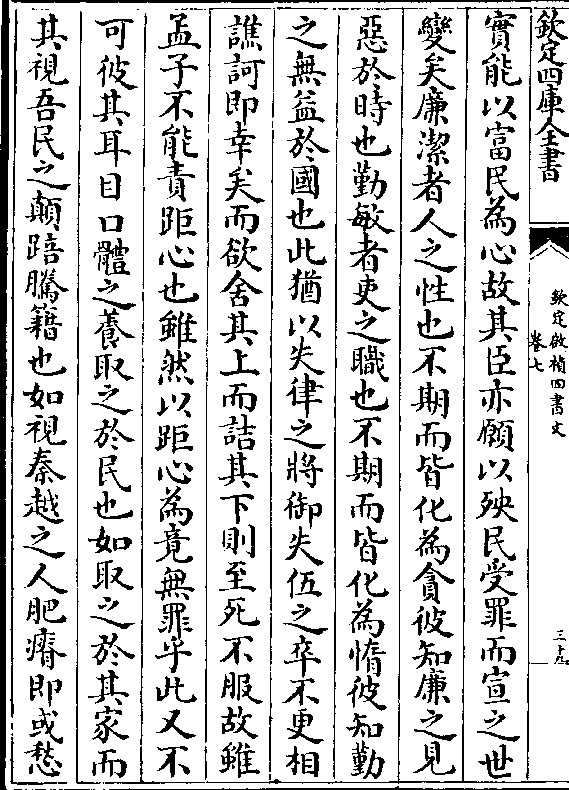 欽定四庫全書
欽定啟禎四書文
卷七
三十九
實能以富民為心故其臣亦願以殃民受罪而宣之世
變矣廉潔者人之性也不期而皆化為貪彼知廉之見
惡於時也勤敏者吏之職也不期而皆化為惰彼知勤
之無益於國也此猶以失律之將御失伍之卒不更相
譙訶即幸矣而欲舍其上而詰其下則至死不服故雖
孟子不能責距心也雖然以距心為竟無罪乎此又不
可彼其耳目口體之養取之於民也如取之於其家而
其視吾民之顛踣騰籍也如視秦越之人肥瘠即或愁